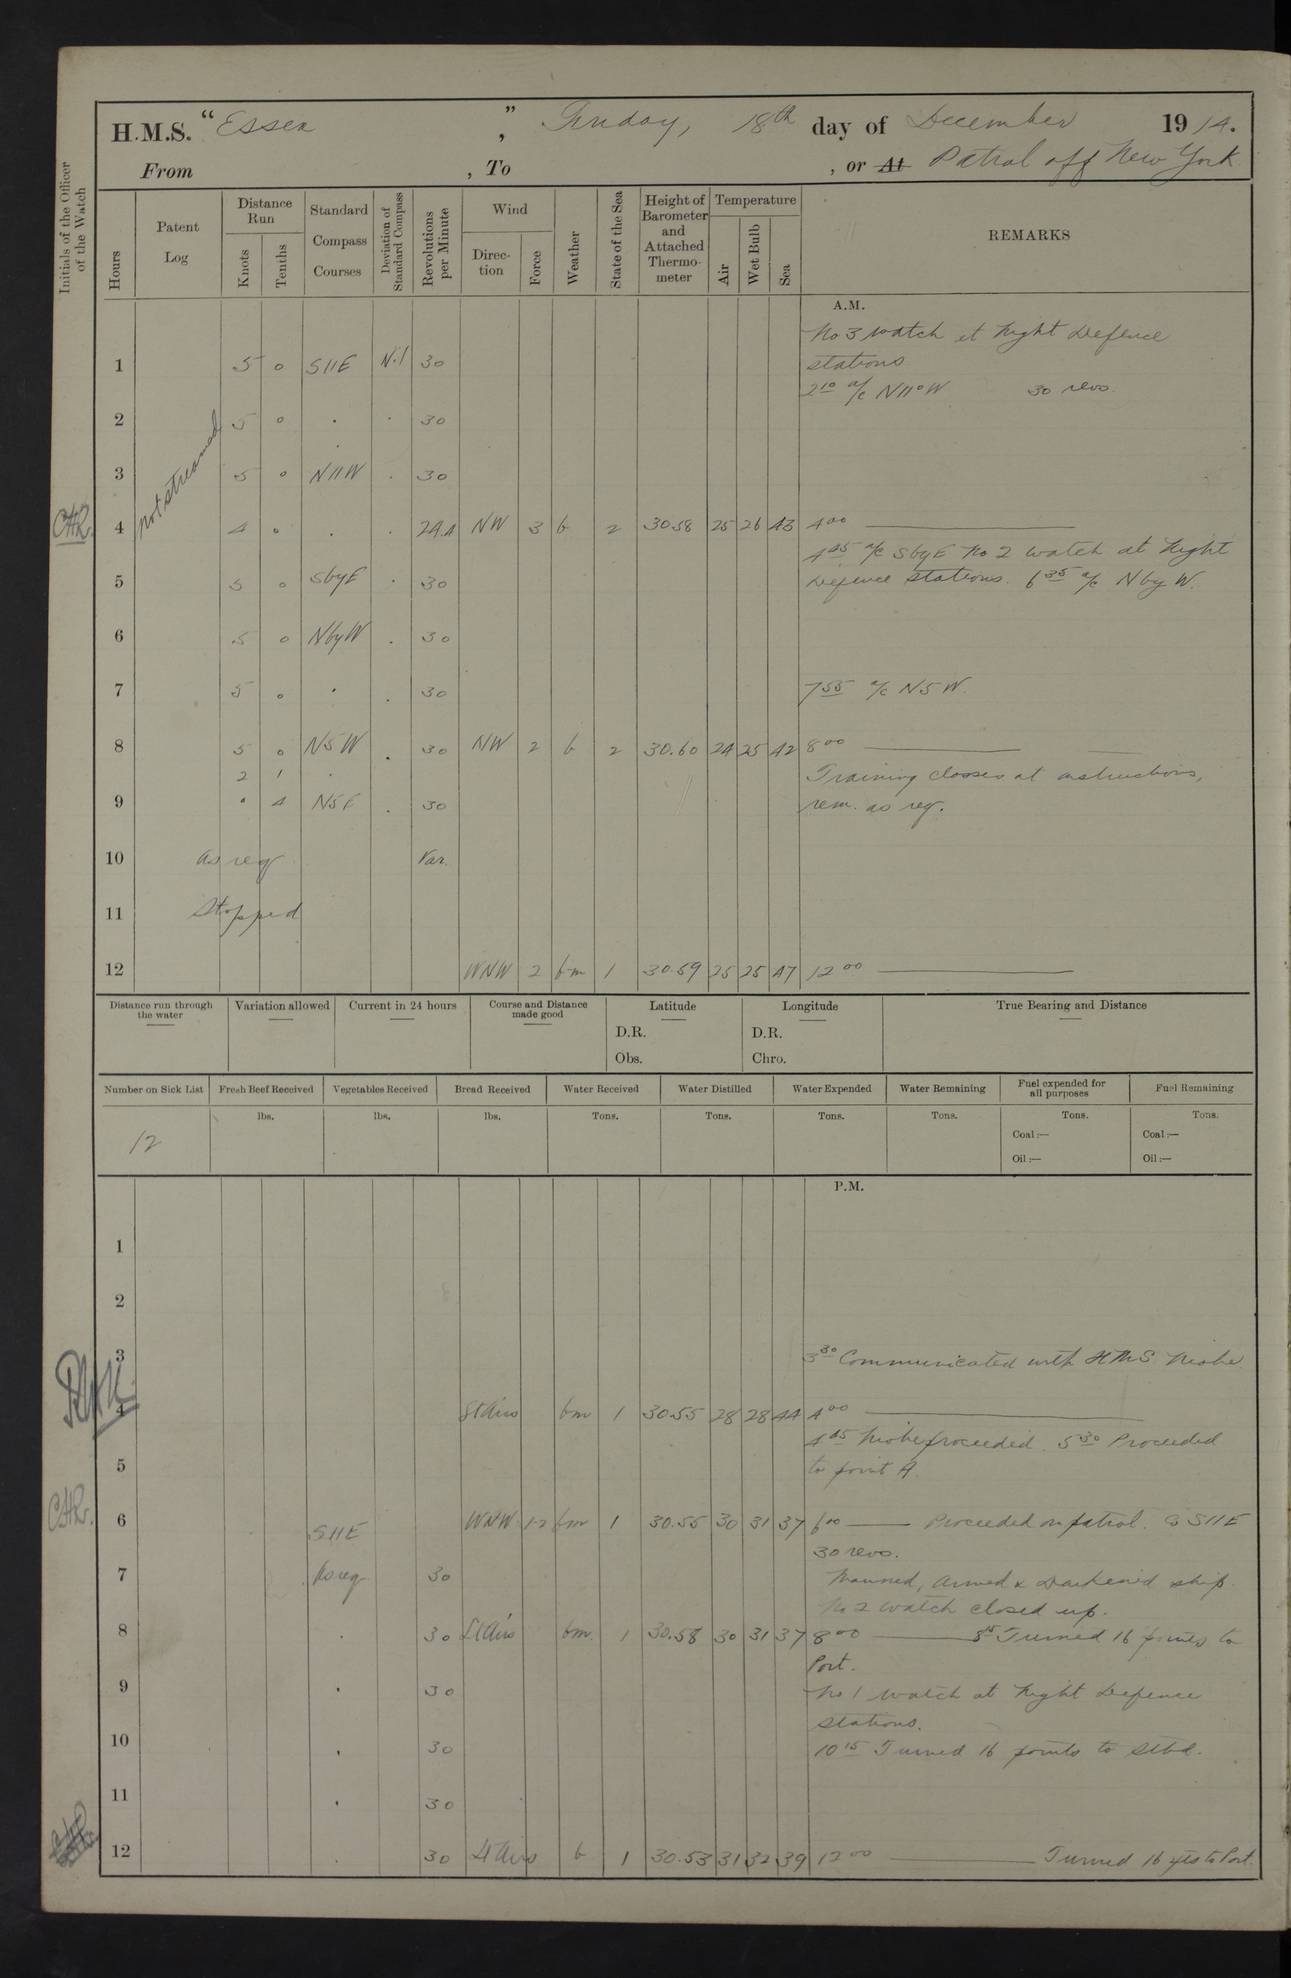 H.M.S. "Essex", Friday, 18th day of December 1914.
From , To , or At Patrol off New York
Initials of the Officer of the Watch
Hours
Patent Log
Distance Run
Knots
Tenths
Standard Compass Courses
Deviation of Standard Compass
Revolutions per Minute
Wind
Direction
Force
Weather
State of the Sea
Height of Barometer and Attached Thermometer
Temperature
Air
Wet Bulb
Sea
REMARKS
A.M.
No 3 watch at Night Defence
1 5 0 S11E Nil 30 stations
2 10 a/c N11°W 30 revs.
2 5 0 . . 30
not streamed
3 5 0 N11W . 30
4 4 0 . . 29.4 NW 3 b 2 30.58 25 26 43 4 00
4 45 a/c SbyE No 2 watch at Night
5 5 0 SbyE . 30 Defence stations. 6 35 a/c N by W.
6 5 0 NbyW . 30
7 5 0 . . 30 7 55 a/c N5W.
8 5 0 N5W . 30 NW 2 b 2 30.60 24 25 42 8 00
2 1 . Training classes at instructions,
9 . 4 N5E . 30 rem. as req.
10 as req Var.
11 Stopped
12 WNW 2 bm 1 30.59 25 25 47 12 00
Distance run through the water
Variation allowed
Current in 24 hours
Course and Distance made good
Latitude
D.R.
Obs.
Longitude
D.R.
Chro.
True Bearing and Distance
Number on Sick List
Fresh Beef Received
Vegetables Received
Bread Received
Water Received
Water Distilled
Water Expended
Water Remaining
Fuel expended for all purposes
Fuel Remaining
lbs. lbs. lbs. Tons. Tons. Tons. Tons. Tons. Tons.
12
Coal:— Coal:—
Oil:— Oil:—
P.M.
1
2
3 3 30 Communicated with HMS Niobe.
4 Lt Airs bm 1 30.55 28 28 44 4 00
4 45 Niobe proceeded. 5 30 Proceeded
5 to point A.
6 S11E WNW 1-2 bm 1 30.55 30 31 37 6 00 Proceeded on patrol. Co S11E
30 revs.
7 As req 30 Manned, armed & Darkened ship.
No 2 watch closed up.
8 . 30 Lt Airs bm 1 30.58 30 31 37 8 00 8 15 Turned 16 points to
Port.
9 . 30 No 1 watch at Night Defence
stations.
10 . 30 10 15 Turned 16 points to Stbd.
11 . 30
12 . 30 Lt Airs b 1 30.53 31 32 39 12 00 Turned 16 pts to Port.